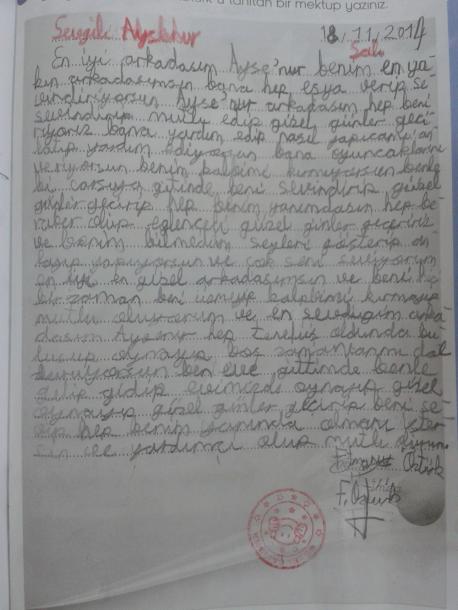 tanıtan bir mektup yazınız.
Sevgili Ayşenur 18.11.2014
Salı
En iyi arkadaşım Ayşe'nur benim en ya-
kın arkadaşımsın bana hep eşya verip se-
vindiriyorsun Ayşe'nur arkadaşım hep beni
sevindirip mutlu edip güzel günler geçi-
riyoruz bana yardım edip nasıl yapıcamı an-
latıp yardım ediyorsun bana oyuncaklarını
veriyorsun benim kalbimi kırmıyorsun benle
bi çarşıya gidinde beni sevindirip güzel
günler geçirip hep benim yanımdasın hep be-
raber olup eğlenceli güzel günler geçiririz
ve benim bilmedim şeyleri gösterip an-
latıp yapıyorsun ve çok seni seviyorum
en iyi en güzel arkadaşımsın ve beni hiç
bir zaman beni üzmeyip kalbimi kırmayıp
mutlu oluyorum ve en sevdiğim arka-
daşım Ayşenur hep teneffüs oldunda bu-
luşup oynayıp boş zamanlarımı dol
duruyorsun ben eve gittimde benle
gelip gidip evimizde oynayıp güzel
oynayıp güzel günler geçirip beni se-
vip hep benim yanımda olmanı ister-
sin ve yardımcı olup mutlu
Öztürk
F. Öztürk